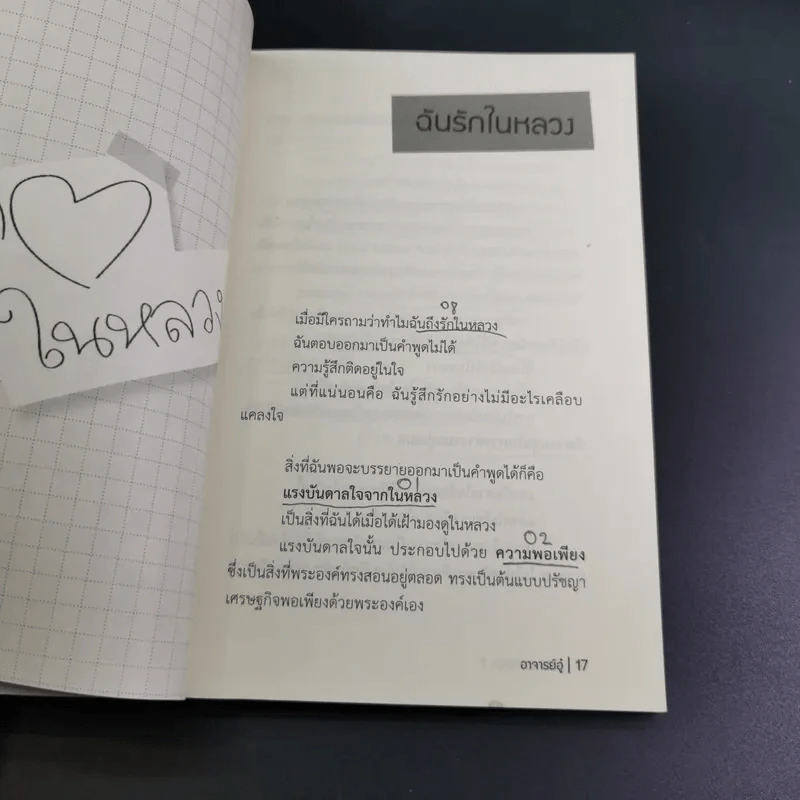 ในหลวง
ฉันรักในหลวง
เมื่อมีใครถามว่าทำไมฉันถึงรักในหลวง
ฉันตอบออกมาเป็นคำพูดไม่ได้
ความรู้สึกติดอยู่ในใจ
แต่ที่แน่นอนคือ ฉันรู้สึกรักอย่างไม่มีอะไรเคลือบ
แคลงใจ
สิ่งที่ฉันพอจะบรรยายออกมาเป็นคำพูดได้ก็คือ
01
แรงบันดาลใจจากในหลวง
เป็นสิ่งที่ฉันได้เมื่อได้เฝ้ามองดูในหลวง
02
แรงบันดาลใจนั้น ประกอบไปด้วย ความพอเพียง
ซึ่งเป็นสิ่งที่พระองค์ทรงสอนอยู่ตลอด ทรงเป็นต้นแบบปรัชญา
เศรษฐกิจพอเพียงด้วยพระองค์เอง
อาจารย์อุ๋ | 17